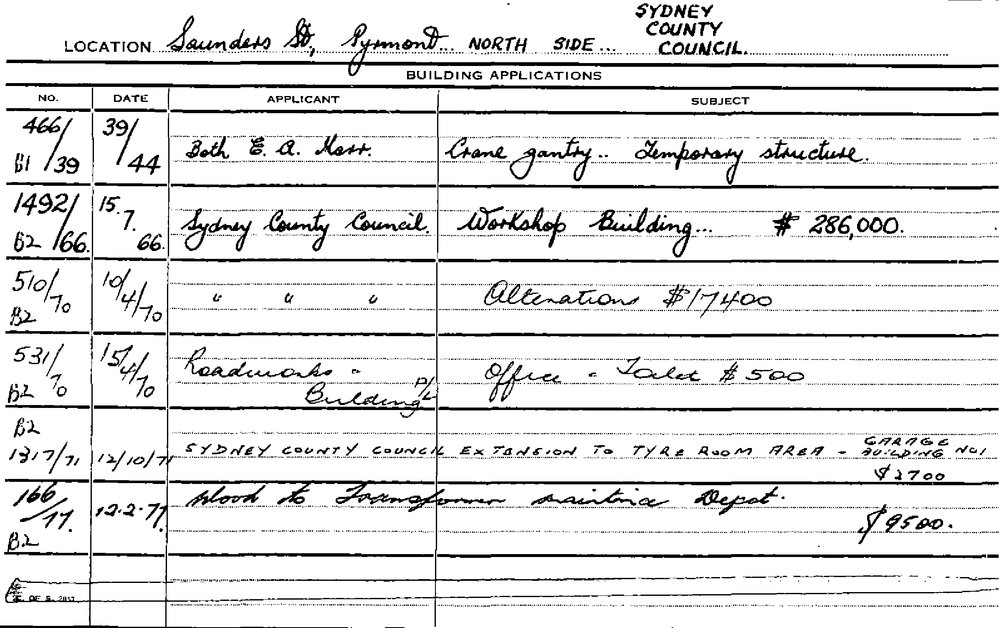 SYDNEY
COUNTY
LOCATION Saunders St, Pyrmont... NORTH SIDE... COUNCIL.
BUILDING APPLICATIONS
NO. DATE APPLICANT SUBJECT
466/ 39/
B1 /39 /44 Both E. A. Marr. Crane gantry.. Temporary structure.
1492/ 15.
7.
B2 /66. 66. Sydney County Council. Workshop Building... $ 286,000.
510/70 10/4/70 " " " Alterations $17400
B2
531/70 15/4/70 Roadworks " Office " Toilet $500
B2 Building P/L
B2 GARAGE
1317/71 12/10/71 SYDNEY COUNTY COUNCIL EXTENSION TO TYRE ROOM AREA - BUILDING NO1
$2700
166 to Transformer Depot.
/77. 12.2.77. $9500.
B2